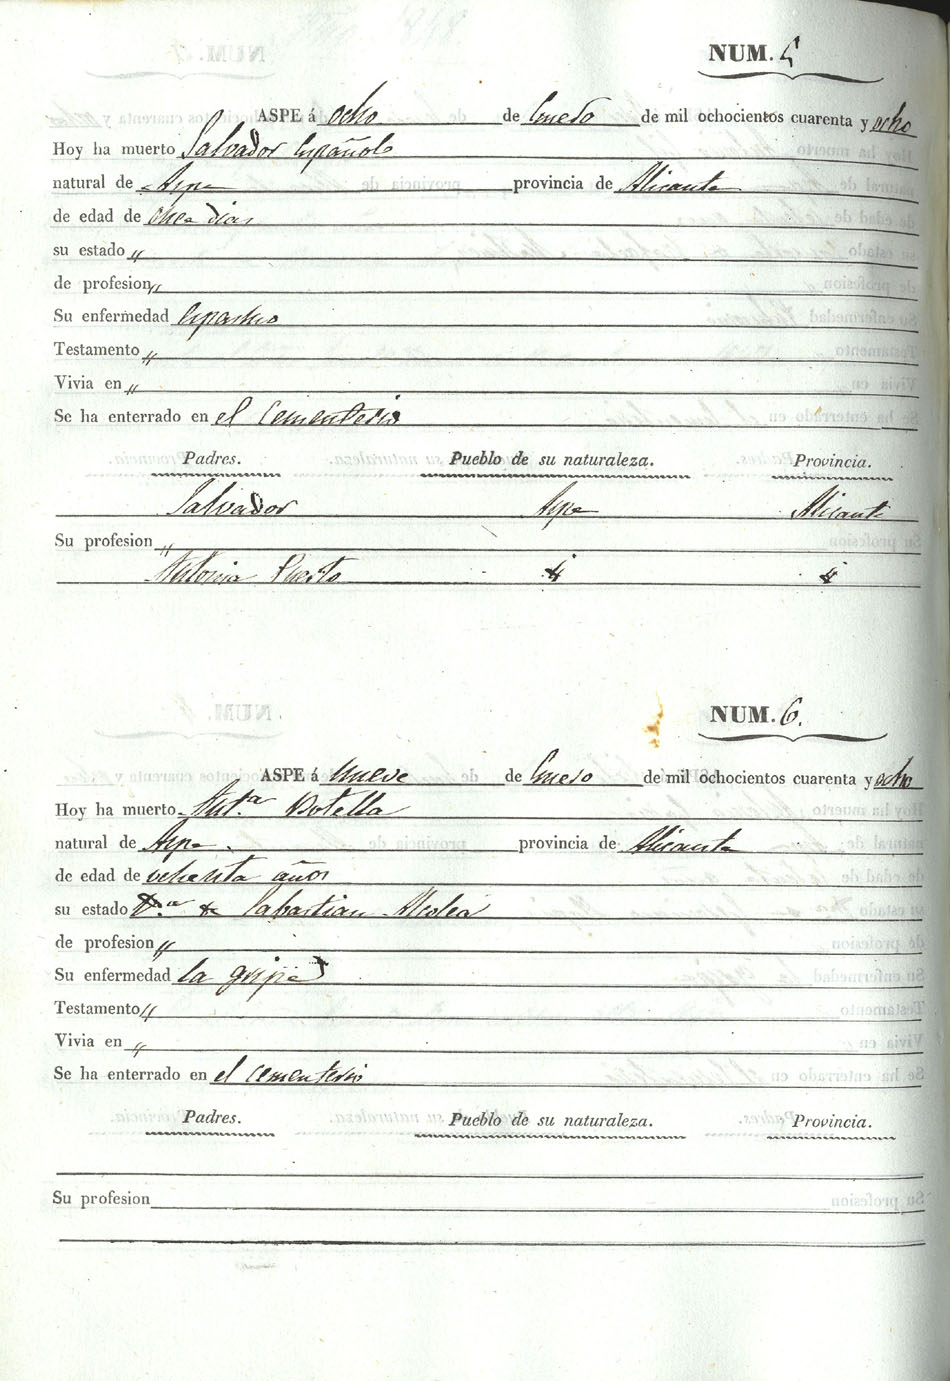 NUM. 5
ASPE á ocho de Enero de mil ochocientos cuarenta y ocho
Hoy ha muerto Salvador Español
natural de Aspe provincia de Alicante
de edad de once dias
su estado "
de profesion "
Su enfermedad Espasmo
Testamento "
Vivia en "
Se ha enterrado en el Cementerio
Padres. Pueblo de su naturaleza. Provincia.
Salvador Aspe Alicante
Su profesion "
Antonia Puerto " "
NUM. 6.
ASPE á nueve de Enero de mil ochocientos cuarenta y ocho
Hoy ha muerto Ant.ª Botella
natural de Aspe. provincia de Alicante
de edad de ochenta años
su estado V.ª de Sabastian Alcolea
de profesion "
Su enfermedad la gripe
Testamento "
Vivia en "
Se ha enterrado en el cementerio
Padres. Pueblo de su naturaleza. Provincia.
Su profesion